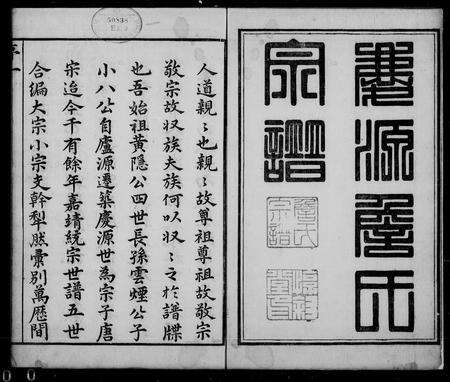 婺源詹氏
宗譜
詹氏
宗譜
人道親〻也親〻故尊祖尊祖故敬宗
敬宗故収族夫族何以収〻之於譜牒
也吾始祖黄隐公四世長孫雲煙公子
小八公自廬源遷築慶源世為宗子唐
宋迨今千有餘年嘉靖統宗世譜五世
合編大宗小宗支幹犁然彙別萬歷間
序一